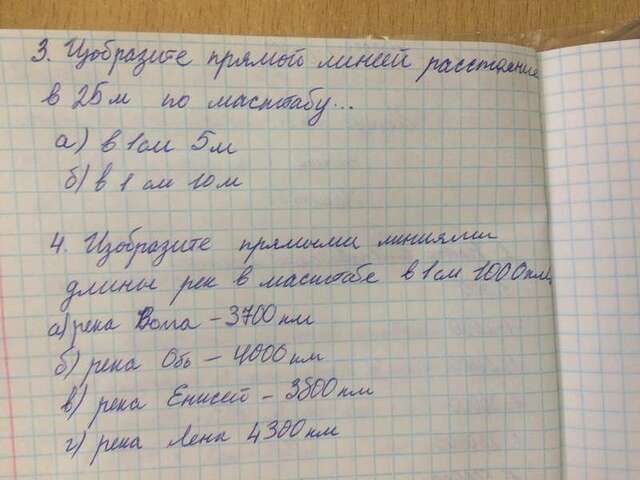 3. Изобразите прямой линией расстояние
в 25 м по масштабу...
а) в 1 см 5 м
б) в 1 см 10 м
4. Изобразите прямыми линиями
длины рек в масштабе в 1 см 1000 км
а) река Волга - 3700 км
б) река Обь - 4000 км
в) река Енисей - 3800 км
г) река Лена 4300 км